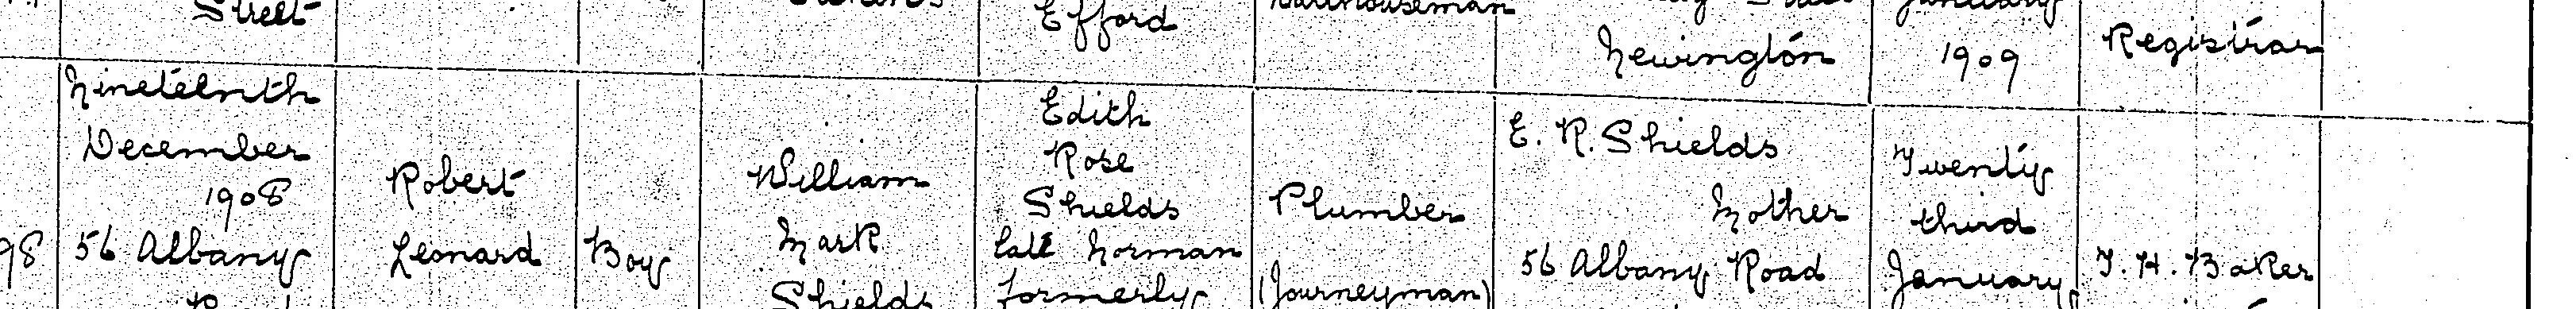 Street
Efford
Newington
1909
Registrar
Nineteenth
December
1908
56 Albany
Robert
Leonard
Boy
William
Mark
Shields
Edith
Rose
Shields
late Norman
formerly
Plumber
(Journeyman)
E. R. Shields
Mother
56 Albany Road
Twenty
third
January
T. H. Baker
98